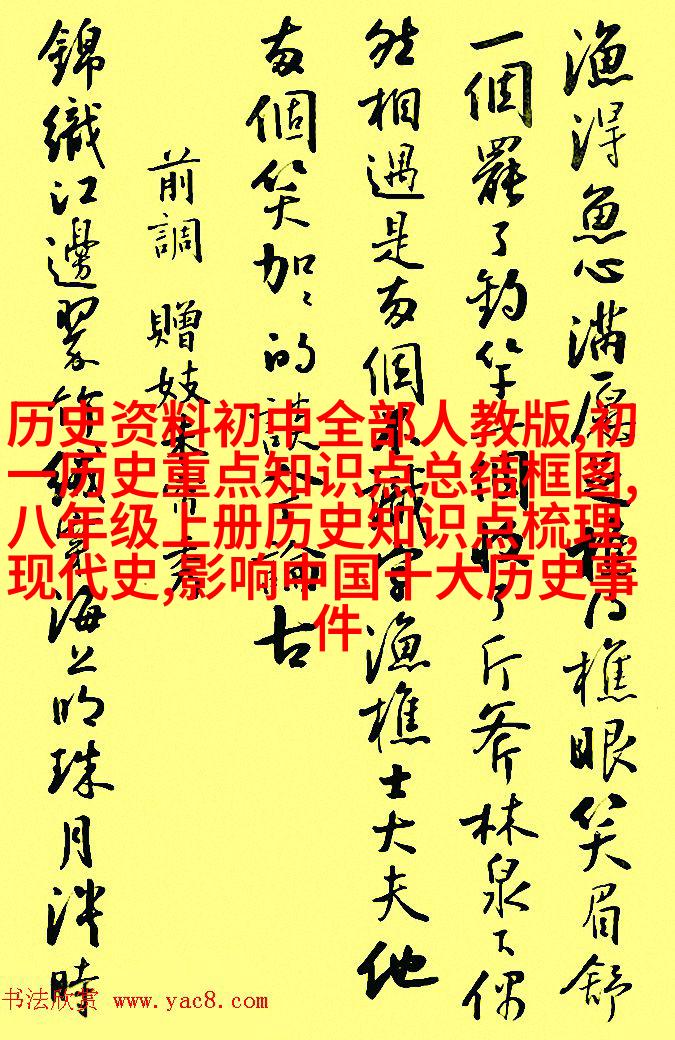 漁得魚心滿願足樵得樵眼笑眉舒
一個罷了釣竿一個收了斤斧林泉下偶
然相遇是兩個不識字漁樵士大夫他
兩個笑加〻的談今論古
前調 贈妓朱簾秀
錦織江邊翠竹絨穿海上明珠月淡時
历史资料初中全部人教版,初
一历史重点知识点总结框图,
八年级上册历史知识点梳理,
现代史,影响中国十大历史事
件
书法欣赏 www.yac8.com